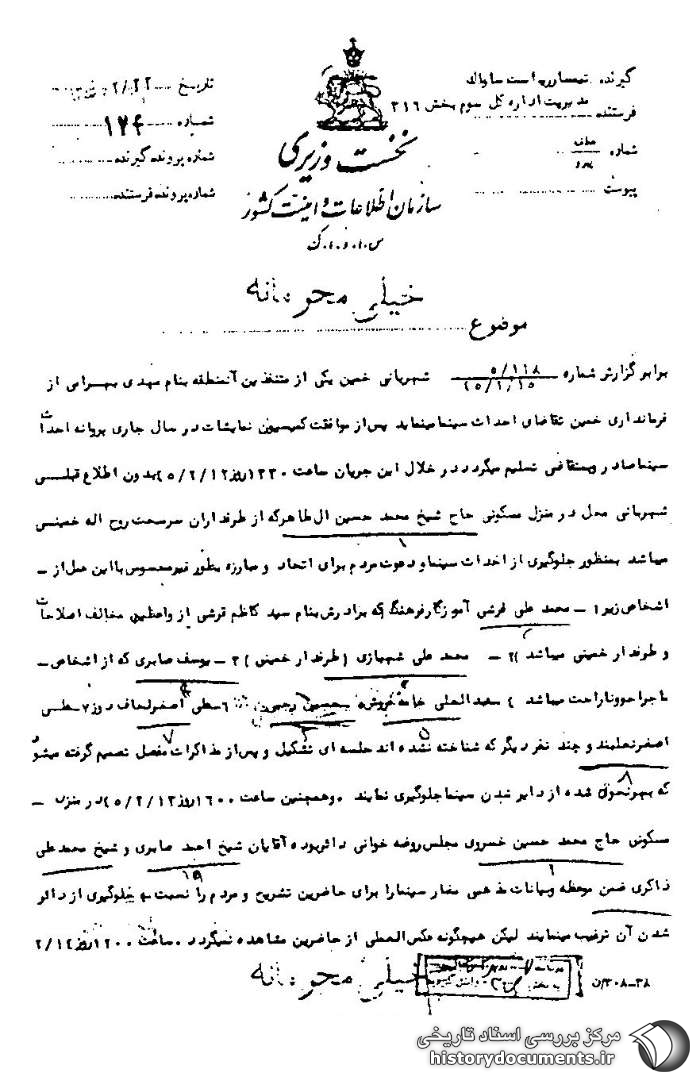 گیرنده تیمسار ریاست ساواک
مدیریت اداره کل سوم بخش ۳۱۶
فرستنده
شماره
پیوست
تاریخ ۲/۲۲
شماره ۱۲۴
شماره پرونده گیرنده
شماره پرونده فرستنده
نخست وزیری
سازمان اطلاعات و امنیت کشور
س.ا.و.ا.ک
خیلی محرمانه
موضوع
برابر گزارش شماره ۵/۱۱۸ ۵/۱/۱۵ شهربانی خمین یکی از متنفذین آنمنطقه بنام مهدی بهرامی از
فرمانداری خمین تقاضای احداث سینما مینماید پس از موافقت کمیسیون نمایشات در سال جاری پروانه احداث
سینما صادر و بمتقاضی تسلیم میگردد در خلال این جریان ساعت ۱۲۳۰ روز ۵/۲/۱۲ بدون اطلاع قبلی
شهربانی محل در منزل مسکونی حاج شیخ محمد حسین ال طاهر که از طرفداران سرسخت روح اله خمینی
میباشد بمنظور جلوگیری از احداث سینما و دعوت مردم برای اتحاد و مبارزه بطور غیر محسوس با این عمل از -
اشخاص زیر ۱ - محمد علی قرشی آموزگار فرهنگ (که برادرش بنام سید کاظم قرشی از واعظین مخالف اصلاحات
و طرفدار خمینی میباشد) ۲ - محمد علی شهبازی (طرفدار خمینی) ۳ - یوسف صابری که از اشخاص -
ماجراجو و ناراحت میباشد) سعید العلی خامه فروش حسین رجبی ۶ - علی اصغر لحاف دوز ۷ - علی
اصغر نعلبند و چند نفر دیگر که شناخته نشده اند جلسه ای تشکیل و پس از مذاکرات مفصل تصمیم گرفته میشود
که بهر نحوی شده از دایر شدن سینما جلوگیری نمایند . و همچنین ساعت ۱۶۰۰ روز ۵/۲/۱۳ در منزل -
مسکونی حاج محمد حسین خسروی مجلس روضه خوانی دائر بوده آقایان شیخ احمد صابری و شیخ محمد علی
ذاکری ضمن موعظه و بیانات مذهبی مضار سینما را برای حاضرین تشریح و مردم را نسبت به جلوگیری از دائر
شدن آن ترغیب مینمایند لیکن هیچگونه عکس العملی از حاضرین مشاهده نمیگردد . ساعت ۱۲۰۰ روز ۲/۱۴
خیلی محرمانه
۳۸-۳۰۸/ن
مرکز بررسی اسناد تاریخی
historydocuments.ir